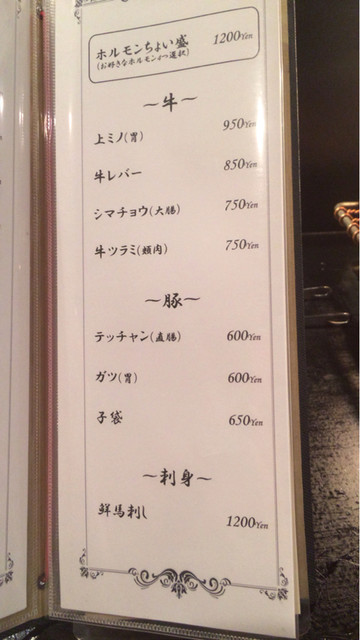 ホルモンちょい盛 1200Yen
(お好きなホルモン4つ選択)
～牛～
上ミノ(胃) 950Yen
牛レバー 850Yen
シマチョウ(大腸) 750Yen
牛ツラミ(頬肉) 750Yen
～豚～
テッチャン(直腸) 600Yen
ガツ(胃) 600Yen
子袋 650Yen
～刺身～
鮮馬刺し 1200Yen